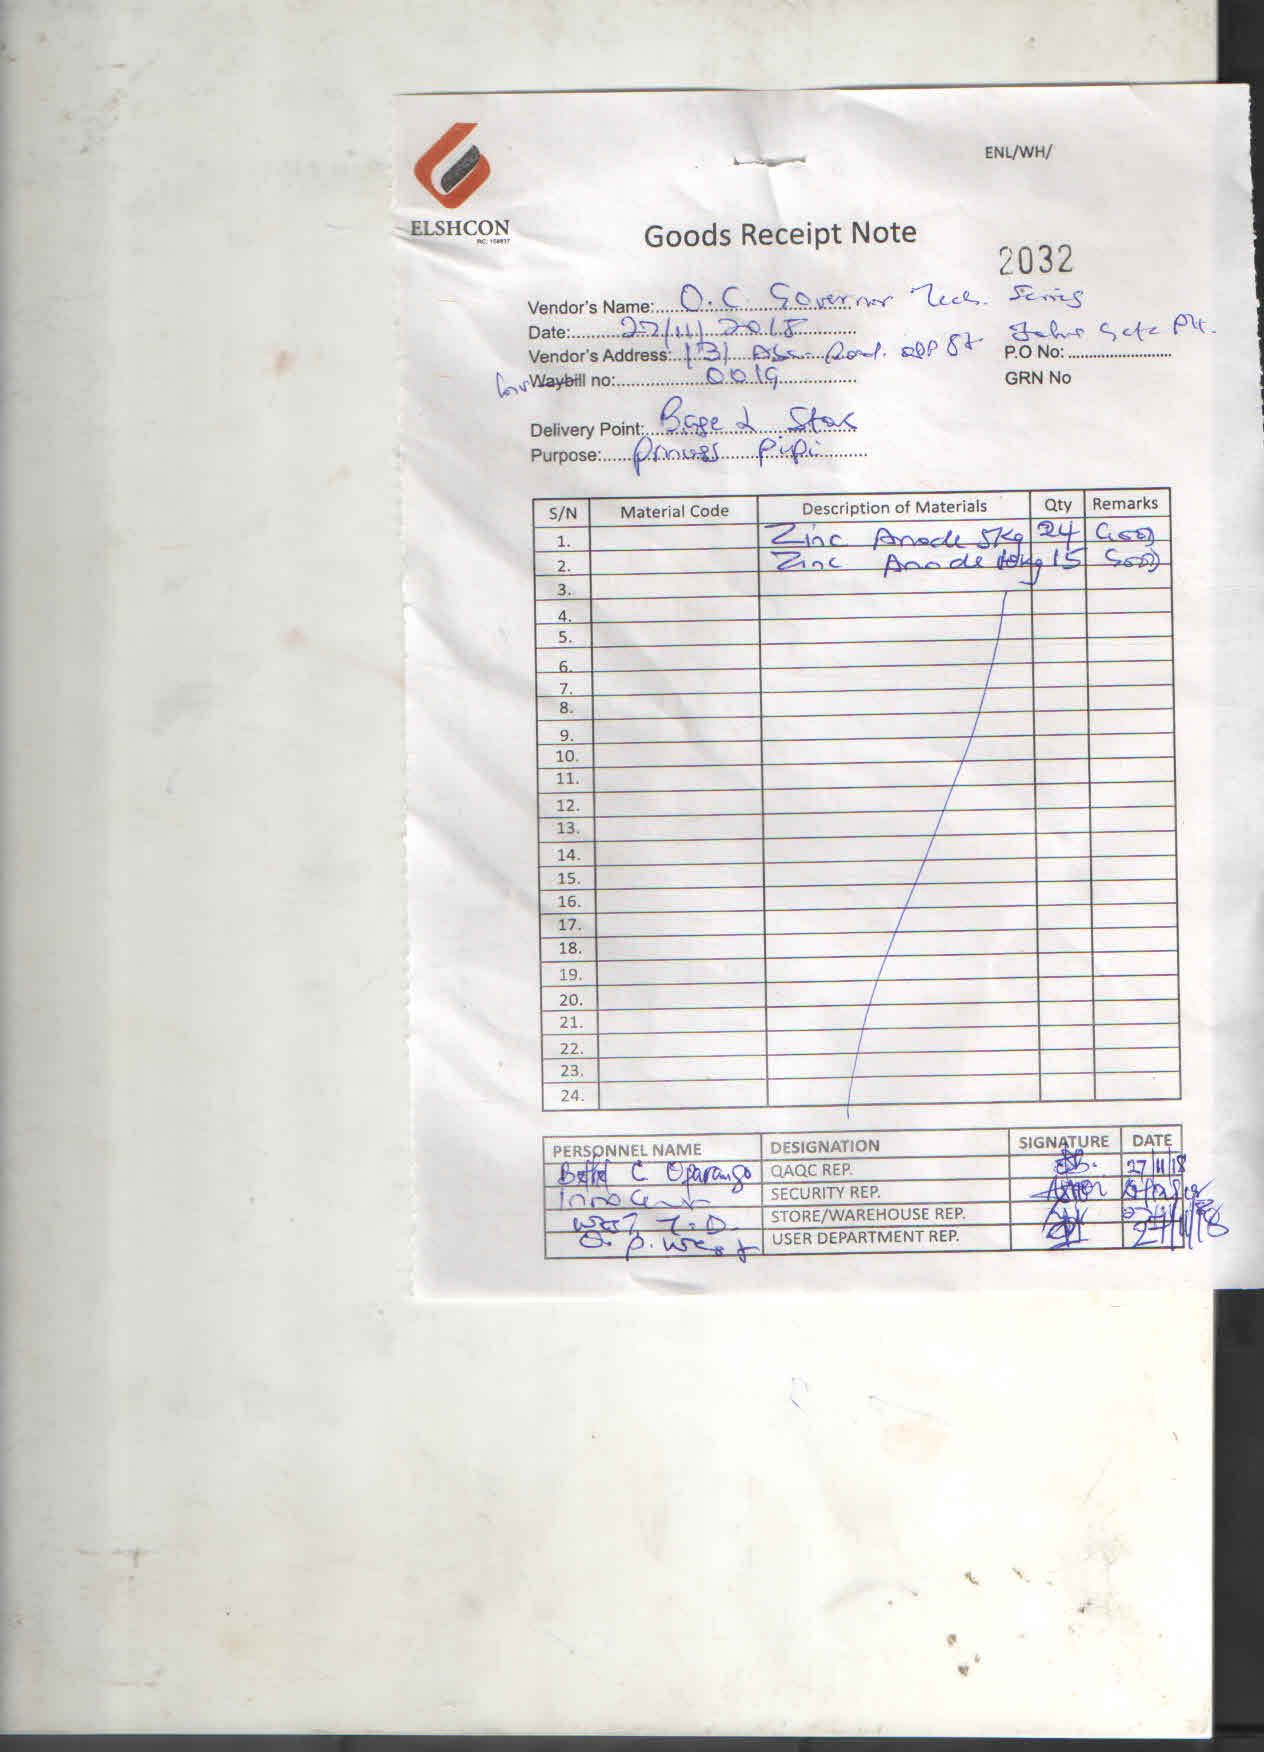 ENL/WH/
ELSHCON
RC. 159837
Goods Receipt Note
2032
Vendor's Name: O.C. Governor Tech.
Date: 27/11/2018
Vendor's Address: 131 Aba Road. opp St John
P.O No:
Waybill no: 0019
GRN No
Delivery Point: Base 2 Store
Purpose:
S/N Material Code Description of Materials Qty Remarks
1. Zinc Anode 5Kg 24 Good
2. Zinc Anode 10kg 15 Good
3.
4.
5.
6.
7.
8.
9.
10.
11.
12.
13.
14.
15.
16.
17.
18.
19.
20.
21.
22.
23.
24.
PERSONNEL NAME DESIGNATION SIGNATURE DATE
C. QAQC REP. 27/11/18
Innocent SECURITY REP.
STORE/WAREHOUSE REP.
USER DEPARTMENT REP. 27/11/18